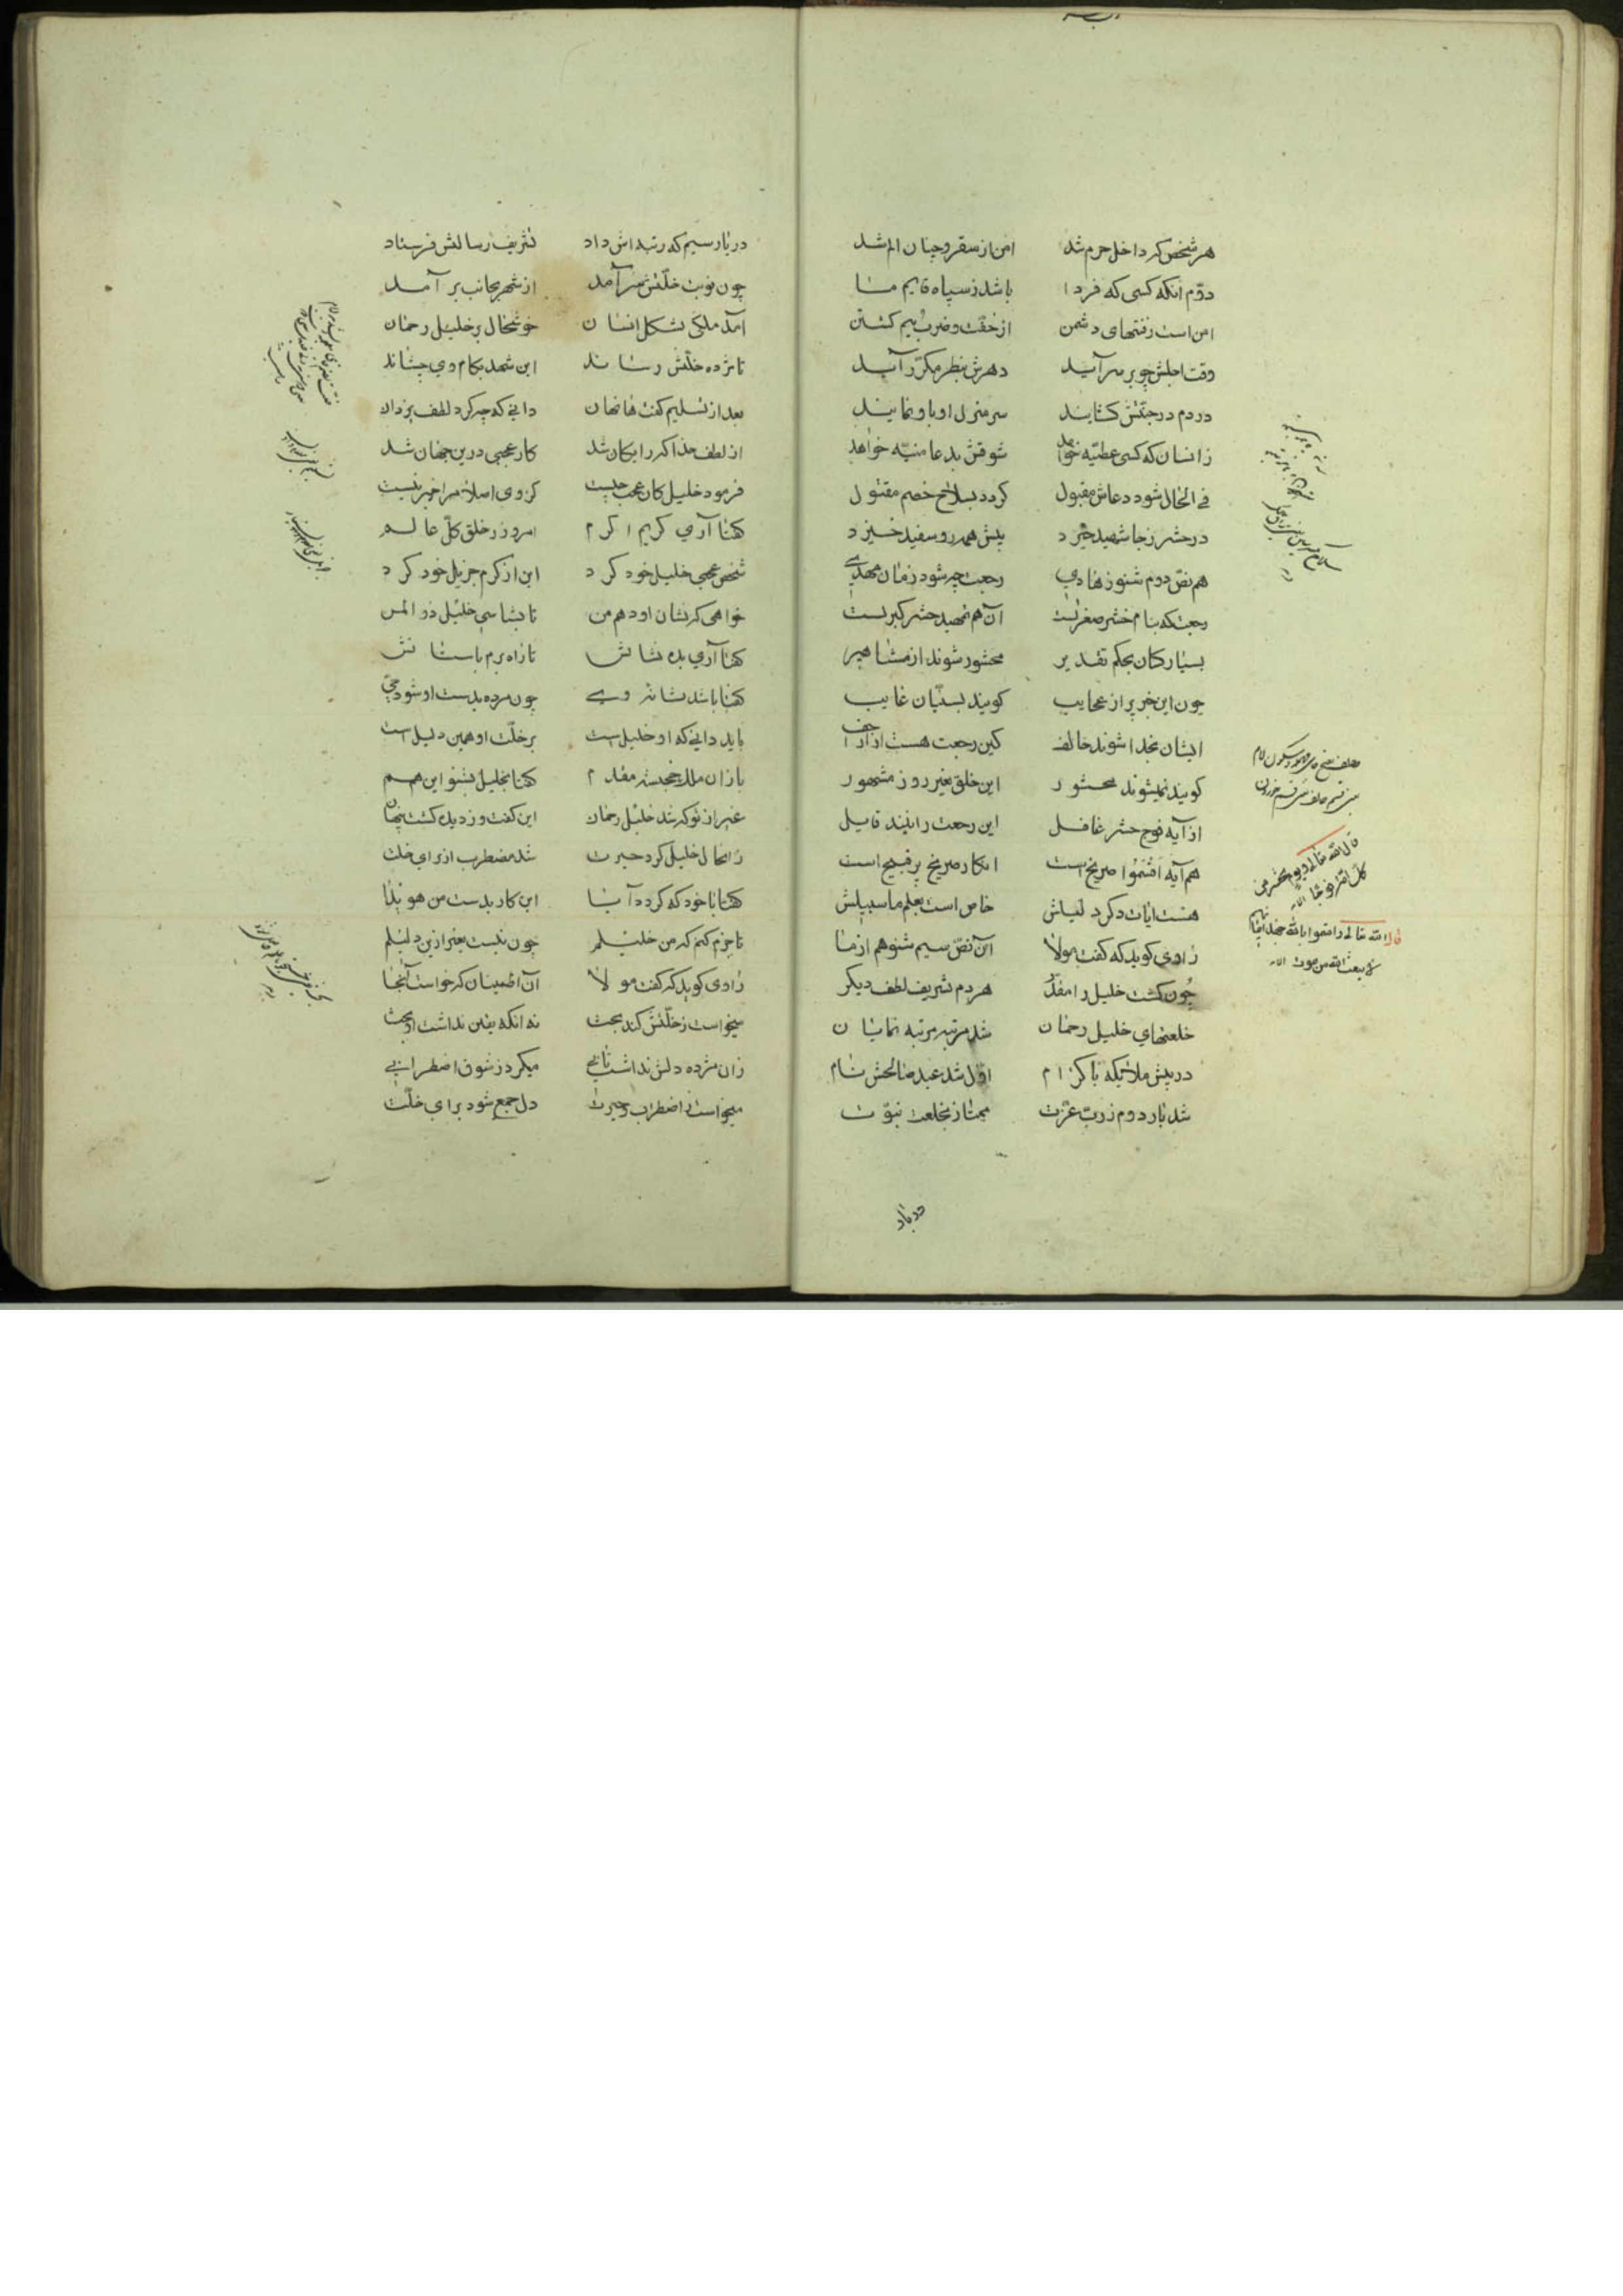 هر شخص که داخل حرم شد امن از سقر و چنان الم شد
دوّم انکه کسی که فردا باشد ز سپاه قایم ما
امن است ز فتنهای دشمن از خفّت و ضرب و بیم کشتن
وقت اجلش چو بر سر آید دهرش بنظر مکرّر آید
در دم در جنّتش کشایند سر منزل او باو نمایند
زانسان که کسی عطیّه خواهد شوقش بدعا منیّه خواهد
فی الحال شود دعاش مقبول کردد بسلاح خصم مقتول
در حشر ز جا شهید خیزد پیش همه رو سفید خیزد
هم نصّ دوم شنو ز هادی رجعت چه شود زمان مهدی
رجعت که بنام حشر صغریست آن هم تمهید حشر کبریست
بسیار کسان بحکم تقدیر محشور شوند از مشاهیر
چون این خبر پر از عجایب کویند بسنّیان غایب
ایشان بخدا شوند حالف کین رجعت هست از اراجیف
کویند نمیشوند محشور این خلق بغیر روز مشهور
از آیه فوج حشر غافل این رجعت را نیند قایل
هم آیه اقسموا صریح است انکار صریح پر قبیح است
هست ایات دکر دلیلش خاص است بعلم ما سبیلش
راوی کوید که کفت مولا این نصّ سیم شنو هم از ما
چون کشت خلیل را مقدّر هر دم تشریف لطف دیکر
خلعتهای خلیل رحمان شد مرتبه مرتبه نمایان
در پیش ملائیکه با کرام اوّل شد عبد صالحش نام
شد بار دوم ز ربّ عزّت ممتاز بخلعت نبوّت
حلف بفتح حای مهمله و سکون لام
قال الله تعالی و یوم نحشر من
کلّ امّة فوجا الآیه
قال الله تعالی و اقسموا بالله جهد ایمانهم
لا یبعث الله من یموت الآیه
در بار
در بار سیم که رتبه اش داد تشریف رسالتش فرستاد
چون نوبت خلّتش سر آمد از شهر بجانب بر آمد
آمد ملکی بشکل انسان خوشحال بر خلیل رحمان
تا مژده خلّتش رساند این شهد بکام وی چشاند
بعد از تسلیم کفت هان هان دانی که چه کرد لطف یزدان
از لطف خدا که رایکان شد کار عجبی درین جهان شد
فرمود خلیل کان عجب چیست کز وی اصلا مرا خبر نیست
کفتا آری کریم اکرم امروز ز خلق کلّ عالم
شخص عجبی خلیل خود کرد این از کرم جزیل خود کرد
خواهی که نشان او دهم من تا بشناسی خلیل ذو المن
کفتا آری بده نشانش تا راه برم باستانش
کفتا باشد نشانه وی چون مرده بدست او شود حی
باید دانی که او خلیل است بر خلّت او همین دلیل است
باز ان ملک خجسته مقدم کفتا بخلیل بشنو این هم
غیر از تو که شد خلیل رحمان این کفت و ز دیده کشت پنهان
زانحال خلیل کرد حیرت شد مضطرب از برای خلّت
کفتا با خود که کردد آیا این کار بدست من هویدا
تا جزم کنم که من خلیلم چون نیست بغیر ازین دلیلم
راوی کوید که کفت مولا آن اطمینان که خواست آنجا
میخواست ز خلّتش کند بحث نه انکه یقین نداشت از بعث
زان مژده دلش نداشت تابی میکرد ز شوق اضطرابی
میخواست ز اضطراب و حیرت دل جمع شود برای خلّت